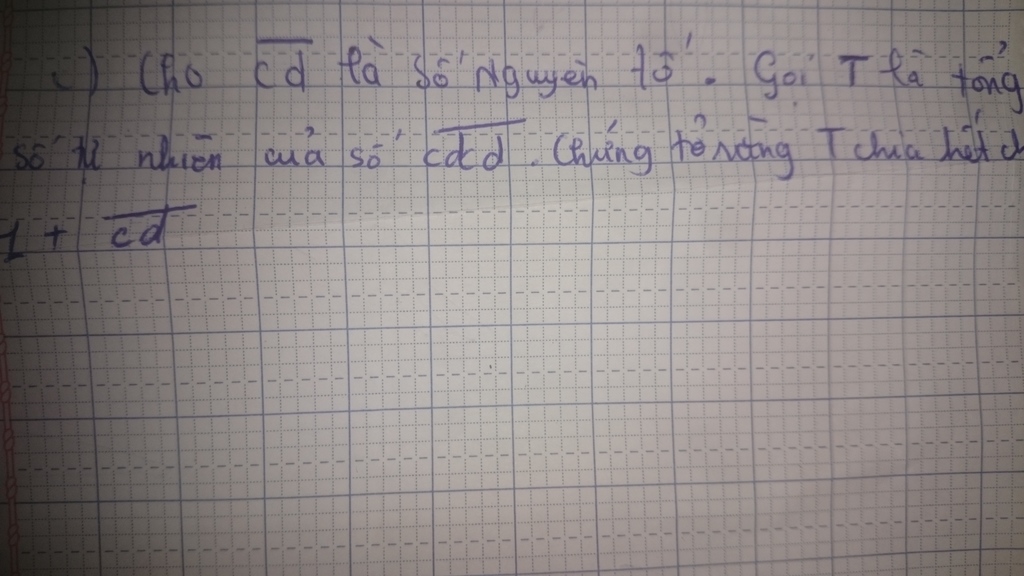 c) Cho cd là số nguyên tố. Gọi T là tổng
số tự nhiên của số cdcd. Chứng tỏ rằng T chia hết ch
1 + cd